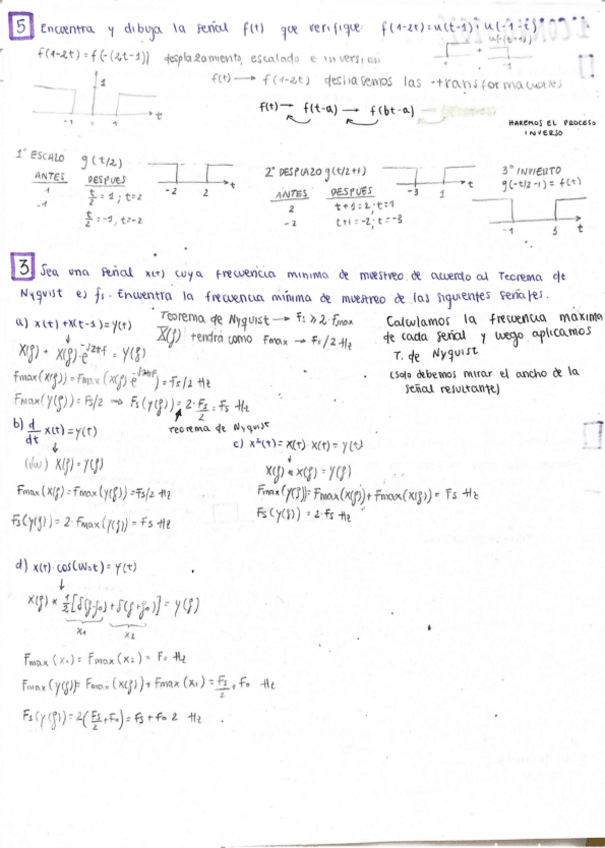 5 Encuentra y dibuja la señal f(t) que verifique: f(1-2t)=u(t-1)+u(-1-t)
u(-(t+1))
f(1-2t)=f(-(2t-1)) desplazamiento, escalado e inversión
f(t) → f(1-2t) deshacemos las transformaciones
1
-1 1 t
f(t) → f(t-a) → f(bt-a)
HAREMOS EL PROCESO
INVERSO
1º ESCALO g(t/2)
ANTES DESPUES
1 t/2 = 1; t=2
-1 t/2 = -1, t=-2
-2 2 t
2º DESPLAZO g(t/2+1)
ANTES DESPUES
2 t+1=2; t=1
-2 t+1=-2; t=-3
-3 1 t
3º INVIERTO
g(-t/2-1) = f(t)
-1 3 t
3 Sea una señal x(t) cuya frecuencia mínima de muestreo de acuerdo al Teorema de
Nyquist es fs. Encuentra la frecuencia mínima de muestreo de las siguientes señales.
a) x(t)+x(t-1)=y(t)
X(f) + X(f)·e^-j2πf = Y(f)
Fmax(X(f))=Fmax(X(f)·e^-j2πf)=Fs/2 Hz
Fmax(Y(f))=Fs/2 → Fs(Y(f))=2·Fs/2=Fs Hz
Teorema de Nyquist → Fs ≥ 2·Fmax
X(f) tendrá como Fmax → Fs/2 Hz
Teorema de Nyquist
Calculamos la frecuencia máxima
de cada señal y luego aplicamos
T. de Nyquist
(solo debemos mirar el ancho de la
señal resultante)
b) d/dt x(t)=y(t)
(jw) X(f)=Y(f)
Fmax(X(f))=Fmax(Y(f))=Fs/2 Hz
Fs(Y(f))=2·Fmax(Y(f))=Fs Hz
c) x²(t)=x(t)·x(t)=y(t)
X(f)*X(f)=Y(f)
Fmax(Y(f))=Fmax(X(f))+Fmax(X(f))=Fs Hz
Fs(Y(f))=2·Fs Hz
d) x(t)·cos(W0t)=y(t)
X(f)*1/2[δ(f-f0)+δ(f+f0)]=Y(f)
X1 X2
Fmax(X1)=Fmax(X2)=F0 Hz
Fmax(Y(f))=Fmax(X(f))+Fmax(X1)=Fs/2+F0 Hz
Fs(Y(f))=2(Fs/2+F0)=Fs+F0 2 Hz